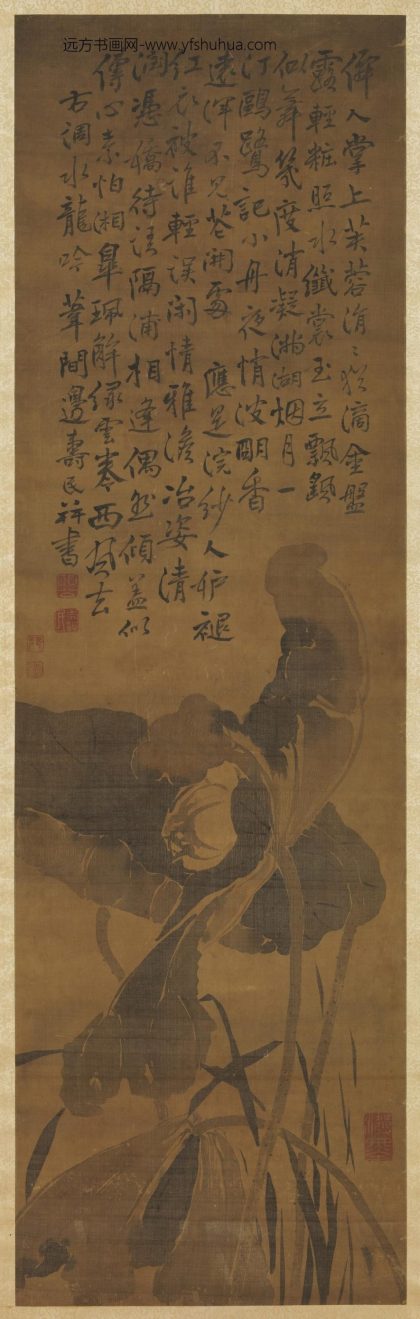 远方书画网-www.yfshuhua.com
僊人掌上芙蓉涓〻猶滴金盤
露輕粧照水纖裳玉立飄颻
似舞幾度消凝滿湖烟月一
汀鷗鷺記小舟夜悄波明香
遠渾不見花開處 應是浣紗人妒褪
紅衣被誰輕誤閑情雅澹冶姿清
潤憑嬌待語隔浦相逢偶然傾蓋似
傳心素怕湘皐珮解緑雲卷西風去
右調水龍吟 葦間邊壽民并書